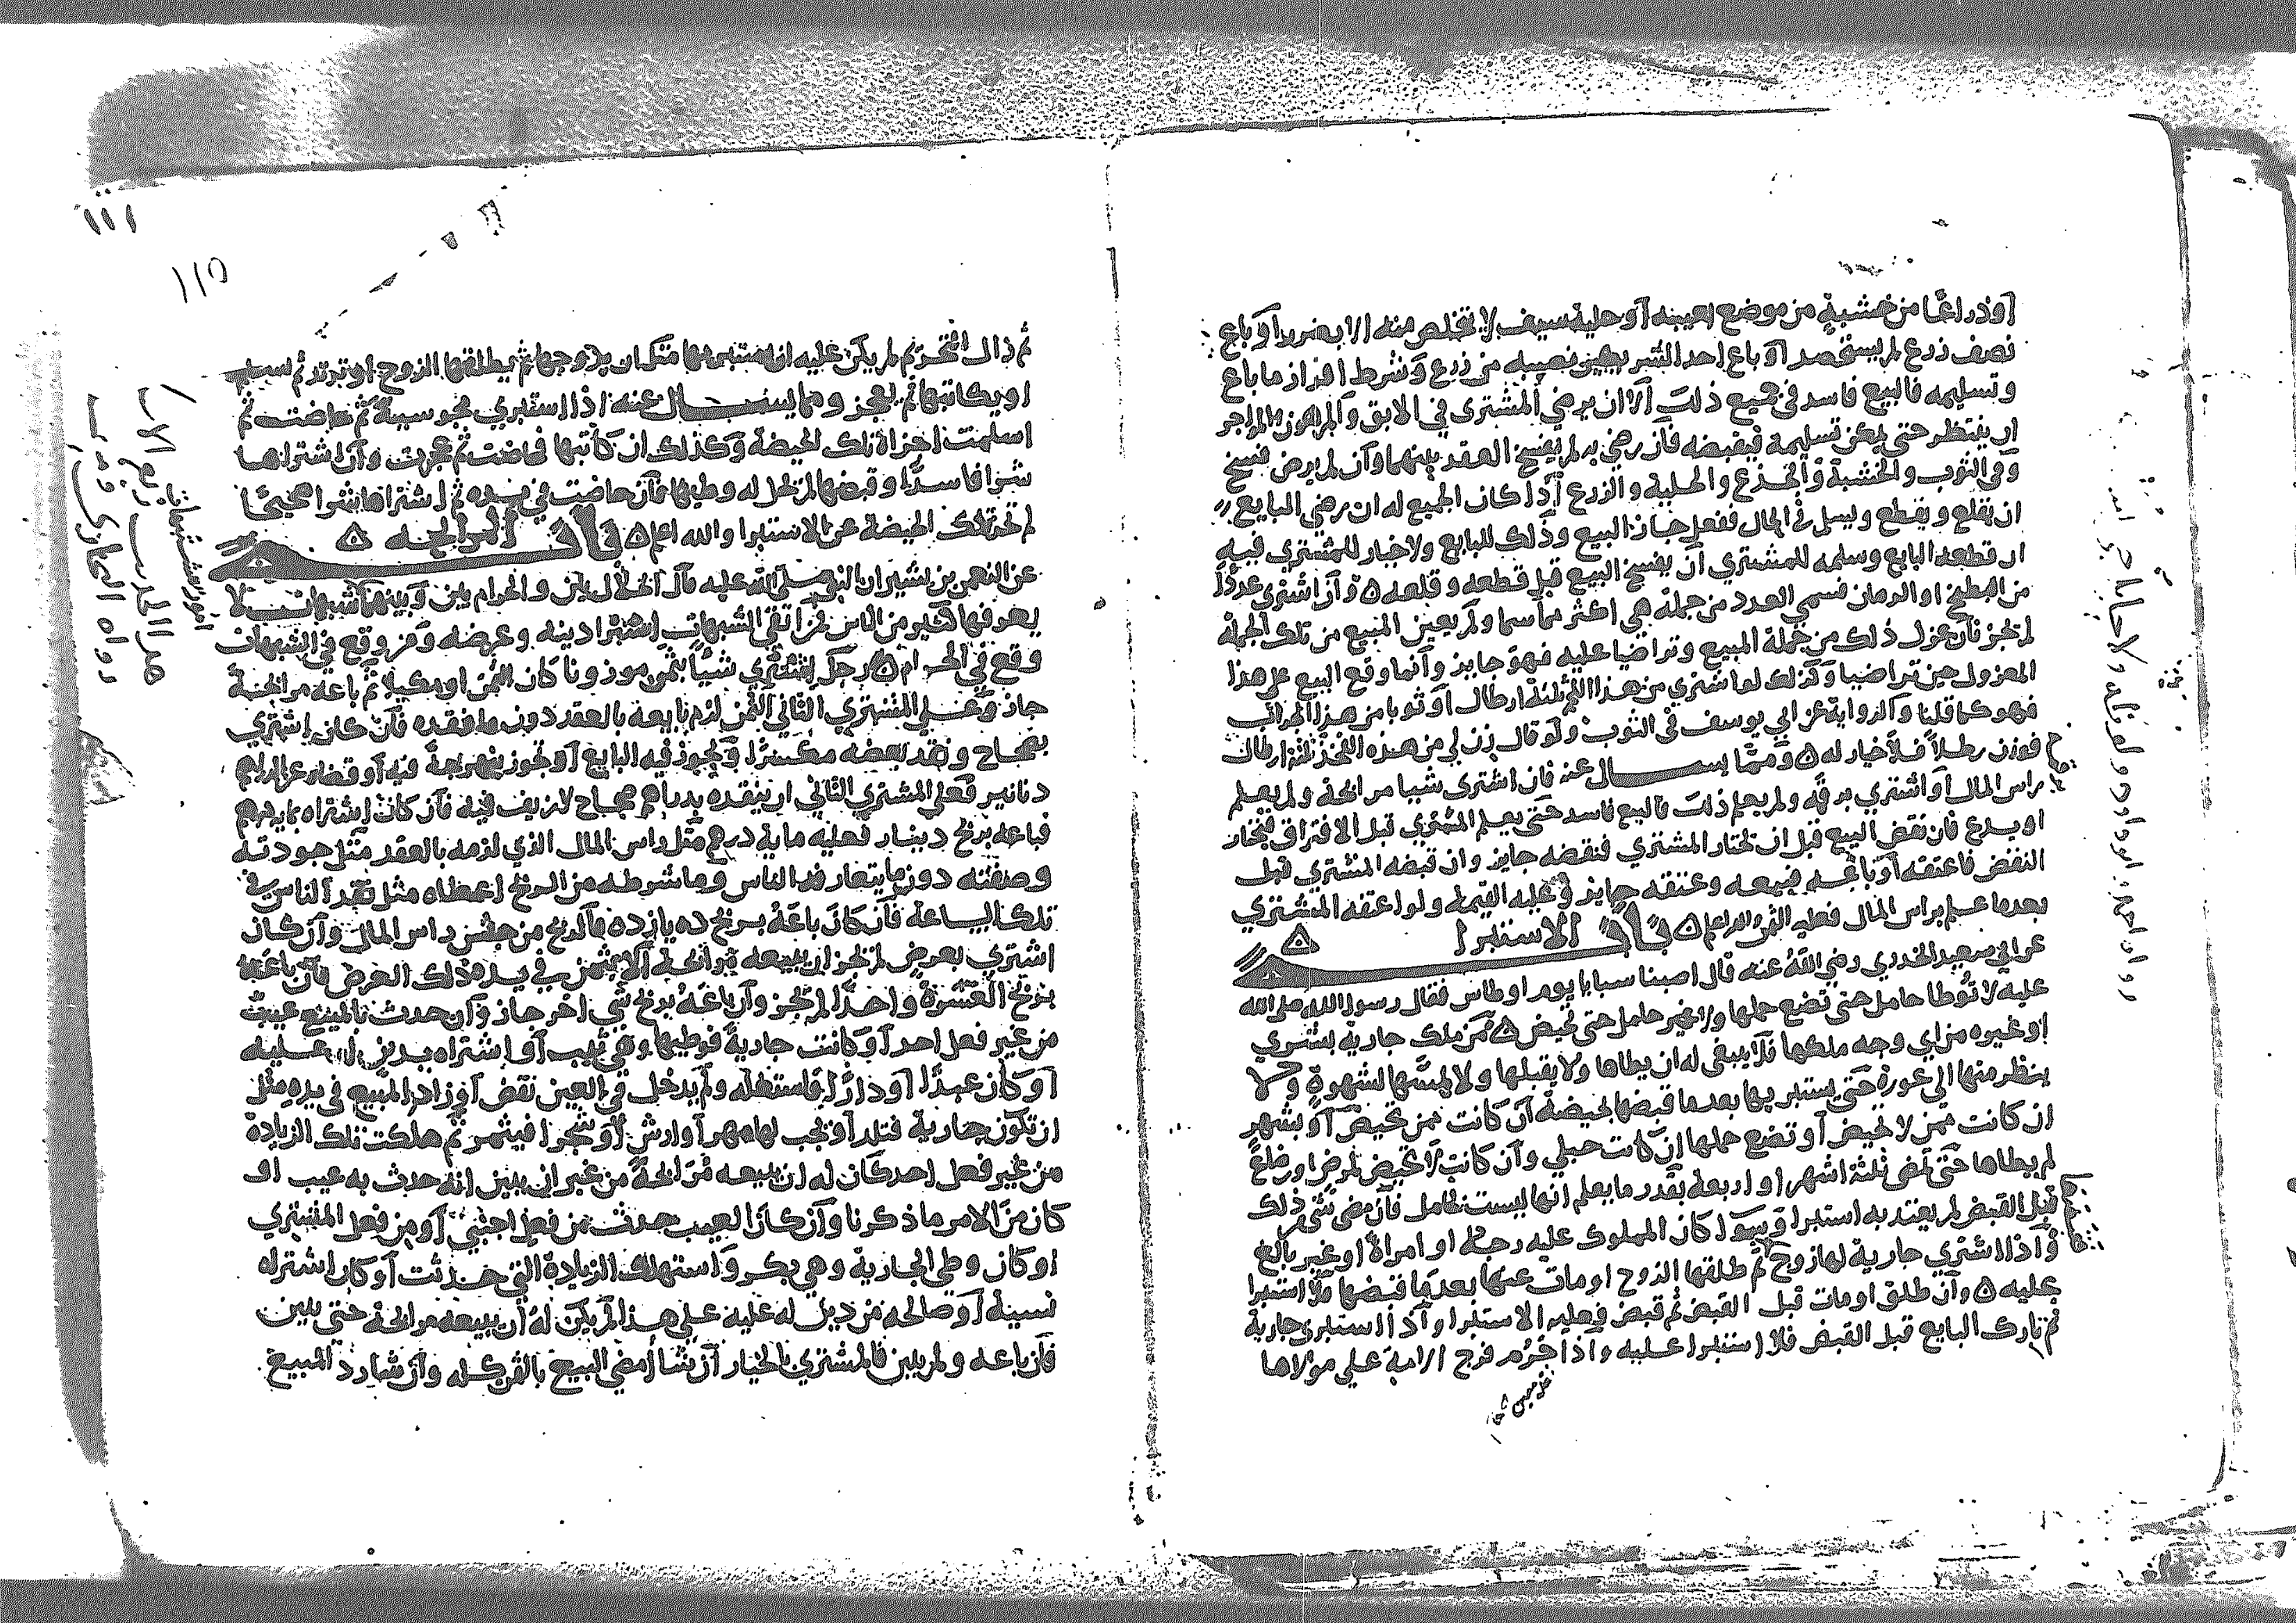 او ذراعا من خشبة من موضع بعينه او حلية سيف لا تخلص منه الا بضرر او باع
نصف زرع لم يستحصد او باع احد الشريكين نصيبه من زرع وشرط افراز ما باع
وتسليمه فالبيع فاسد في جميع ذلك الا ان يرضي المشتري في الابق والمرهون والمواجر
ان ينتظر حتى يمكن تسليمه فيقبضه فان رضي به لم يفسخ العقد بينهما وان لم يرض فسخ
وفي الثوب والخشبة والجذع والحلية والزرع اذا كان الجميع له ان رضي البايع
ان يقلع ويقطع ويسلم في الحال ففعل جاز البيع وذلك للبايع ولا خيار للمشتري فيه
ان قطعه البايع وسلمه للمشتري ان يفسخ البيع قبل قطعه وقلعه ه وان اشترى عددا
من البطيخ او الرمان فسمى العدد من جملة هي اكثر مما سما ولم يعين المبيع من تلك الجملة
لم تجز فان عزل ذلك من جملة المبيع وتراضيا عليه فهو جايز وانما وقع البيع على هذا
المعزول حين تراضيا وكذلك لو اشتري من هذا اللحم ثلثة ارطال او ثوبا من هذا الجراب
فهو كما قلنا والرواية عن ابي يوسف في الثوب ولو قال زن لي من هذه الفخذ ثلثة ارطال
فوزن رطلا فلا خيار له ه ومما يسال عنه فان اشترى شيا مرابحة ولم يعلم
براس المال او اشتري برقمه ولم يعلم ذلك فالبيع فاسد حتى يعلم المشتري قبل الافتراق فيختار
او يدع فان نقض البيع قبل ان يختار المشتري فنقضه جايز وان قبضه المشتري قبل
النقض فاعتقه او باعه فبيعه وعتقه جايز وعليه القيمة ولو اعتقه المشتري
بعدما علم براس المال فعليه الثمن والله اعلم ه باب الاستبرا ه
عن ابي سعيد الخدري رضي الله عنه قال اصبنا سبايا يوم اوطاس فقال رسول الله صلى الله
عليه لا توطا حامل حتى تضع حملها ولا غير حامل حتى تحيض ه فمن ملك جارية بشري
او غيره من اي وجه ملكها فلا ينبغي له ان يطاها ولا يقبلها ولا يمسها لشهوة ولا
ينظر منها الى عورة حتى يستبريها بعدما قبضها بحيضة ان كانت ممن تحيض او بشهر
ان كانت ممن لا تحيض او تضع حملها ان كانت حبلي وان كانت لا تحيض لمرض او رضاع
لم يطاها حتى تمضى ثلثة اشهر او اربعة بقدر ما يعلم انها ليست بحامل فان مضى شي من ذلك
قبل القبض لم يعتد به استبرا وسوا كان المملوك عليه رجلا او امراة او غير بالغ
واذا اشترى جارية لها زوج ثم طلقها الزوج او مات عنها بعدما قبضها فلا استبرا
عليه ه وان طلق او مات قبل القبض ثم قبض فعليه الاستبرا واذا استبرى جارية
ثم تارك البايع قبل القبض فلا استبرا عليه واذا حرم فرج الامة على مولاها
١١١
١١٥
ثم زال التحريم لم يكن عليه ان يستبريها مثل ان يزوجها ثم يطلقها الزوج او ترتد ثم تسلم
او يكاتبها ثم تعجز ومما يسال عنه اذا استبري مجوسية ثم حاضت ثم
اسلمت اجزاه تلك الحيضة وكذلك ان كاتبها فحاضت ثم عجزت وان اشتراها
شرا فاسدا وقبضها لم يحل له وطيها فان حاضت في يده ثم اشتراها شرا صحيحا
لم تجز تلك الحيضة عن الاستبرا والله اعلم ه باب المرابحة ه
عن النعمن بن بشير ان النبي صلى الله عليه قال الحلال بين والحرام بين وبينهما شبهات لا
يعرفها كثير من الناس فمن اتقى الشبهات استبرا دينه وعرضه ومن وقع في الشبهات
وقع في الحرام ه رجل اشتري شيا بثمن موزونا كان الثمن او مكيلا ثم باعه مرابحة
جاز وعلى المشتري الثاني الثمن لزم بايعه بالعقد دون ما نقده فان كان اشتري
بصحاح ونقد بعضه مكسرا وتجوز فيه البايع او تجوز بنهرجة فيه او قضاه عن الدراهم
دنانير فعلي المشتري الثاني ان ينقده بدراهم صحاح لا زيف فيه فان كان اشتراه بماية درهم
فباعه بربح دينار فعليه ماية درهم مثل راس المال الذي لزمه بالعقد مثل جودته
وصفته دون ما يتعارفه الناس وما شرطه من الربح اعطاه مثل نقد الناس في
تلك الساعة فان كان باعه بربح ده يازده فالربح من جنس راس المال وان كان
اشتري بعرض لم تجز ان يبيعه مرابحة الا ممن في يده ذلك العرض فان باعه
بربح العشرة واحدا لم تجز وان باعه بربح شي اخر جاز وان حدث بالمبيع عيب
من غير فعل احد او كانت جارية فوطيها وهي ثيب او اشتراه بدين له عليه
او كان عبدا او دارا فاستغله ولم يدخل في العين نقض او زاد المبيع في يده مثل
ان تكون جارية فتلد او يجب لها مهر او ارش او شجرا فيثمر ثم هلكت تلك الزيادة
من غير فعل احد كان له ان يبيعه مرابحة من غير ان يبين انه حدث به عيب او
كان من الامر ما ذكرنا وان كان العيب حدث من فعل اجنبي او من فعل المشتري
او كان وطي الجارية وهي بكر واستهلك الزيادة التي حدثت او كان اشتراه
نسية او صالحه من دين له عليه على هذا لم يكن له ان يبيعه مرابحة حتى يبين
فان باعه ولم يبين فالمشتري بالخيار ان شا امضى البيع بالثمن كله وان شا رد المبيع